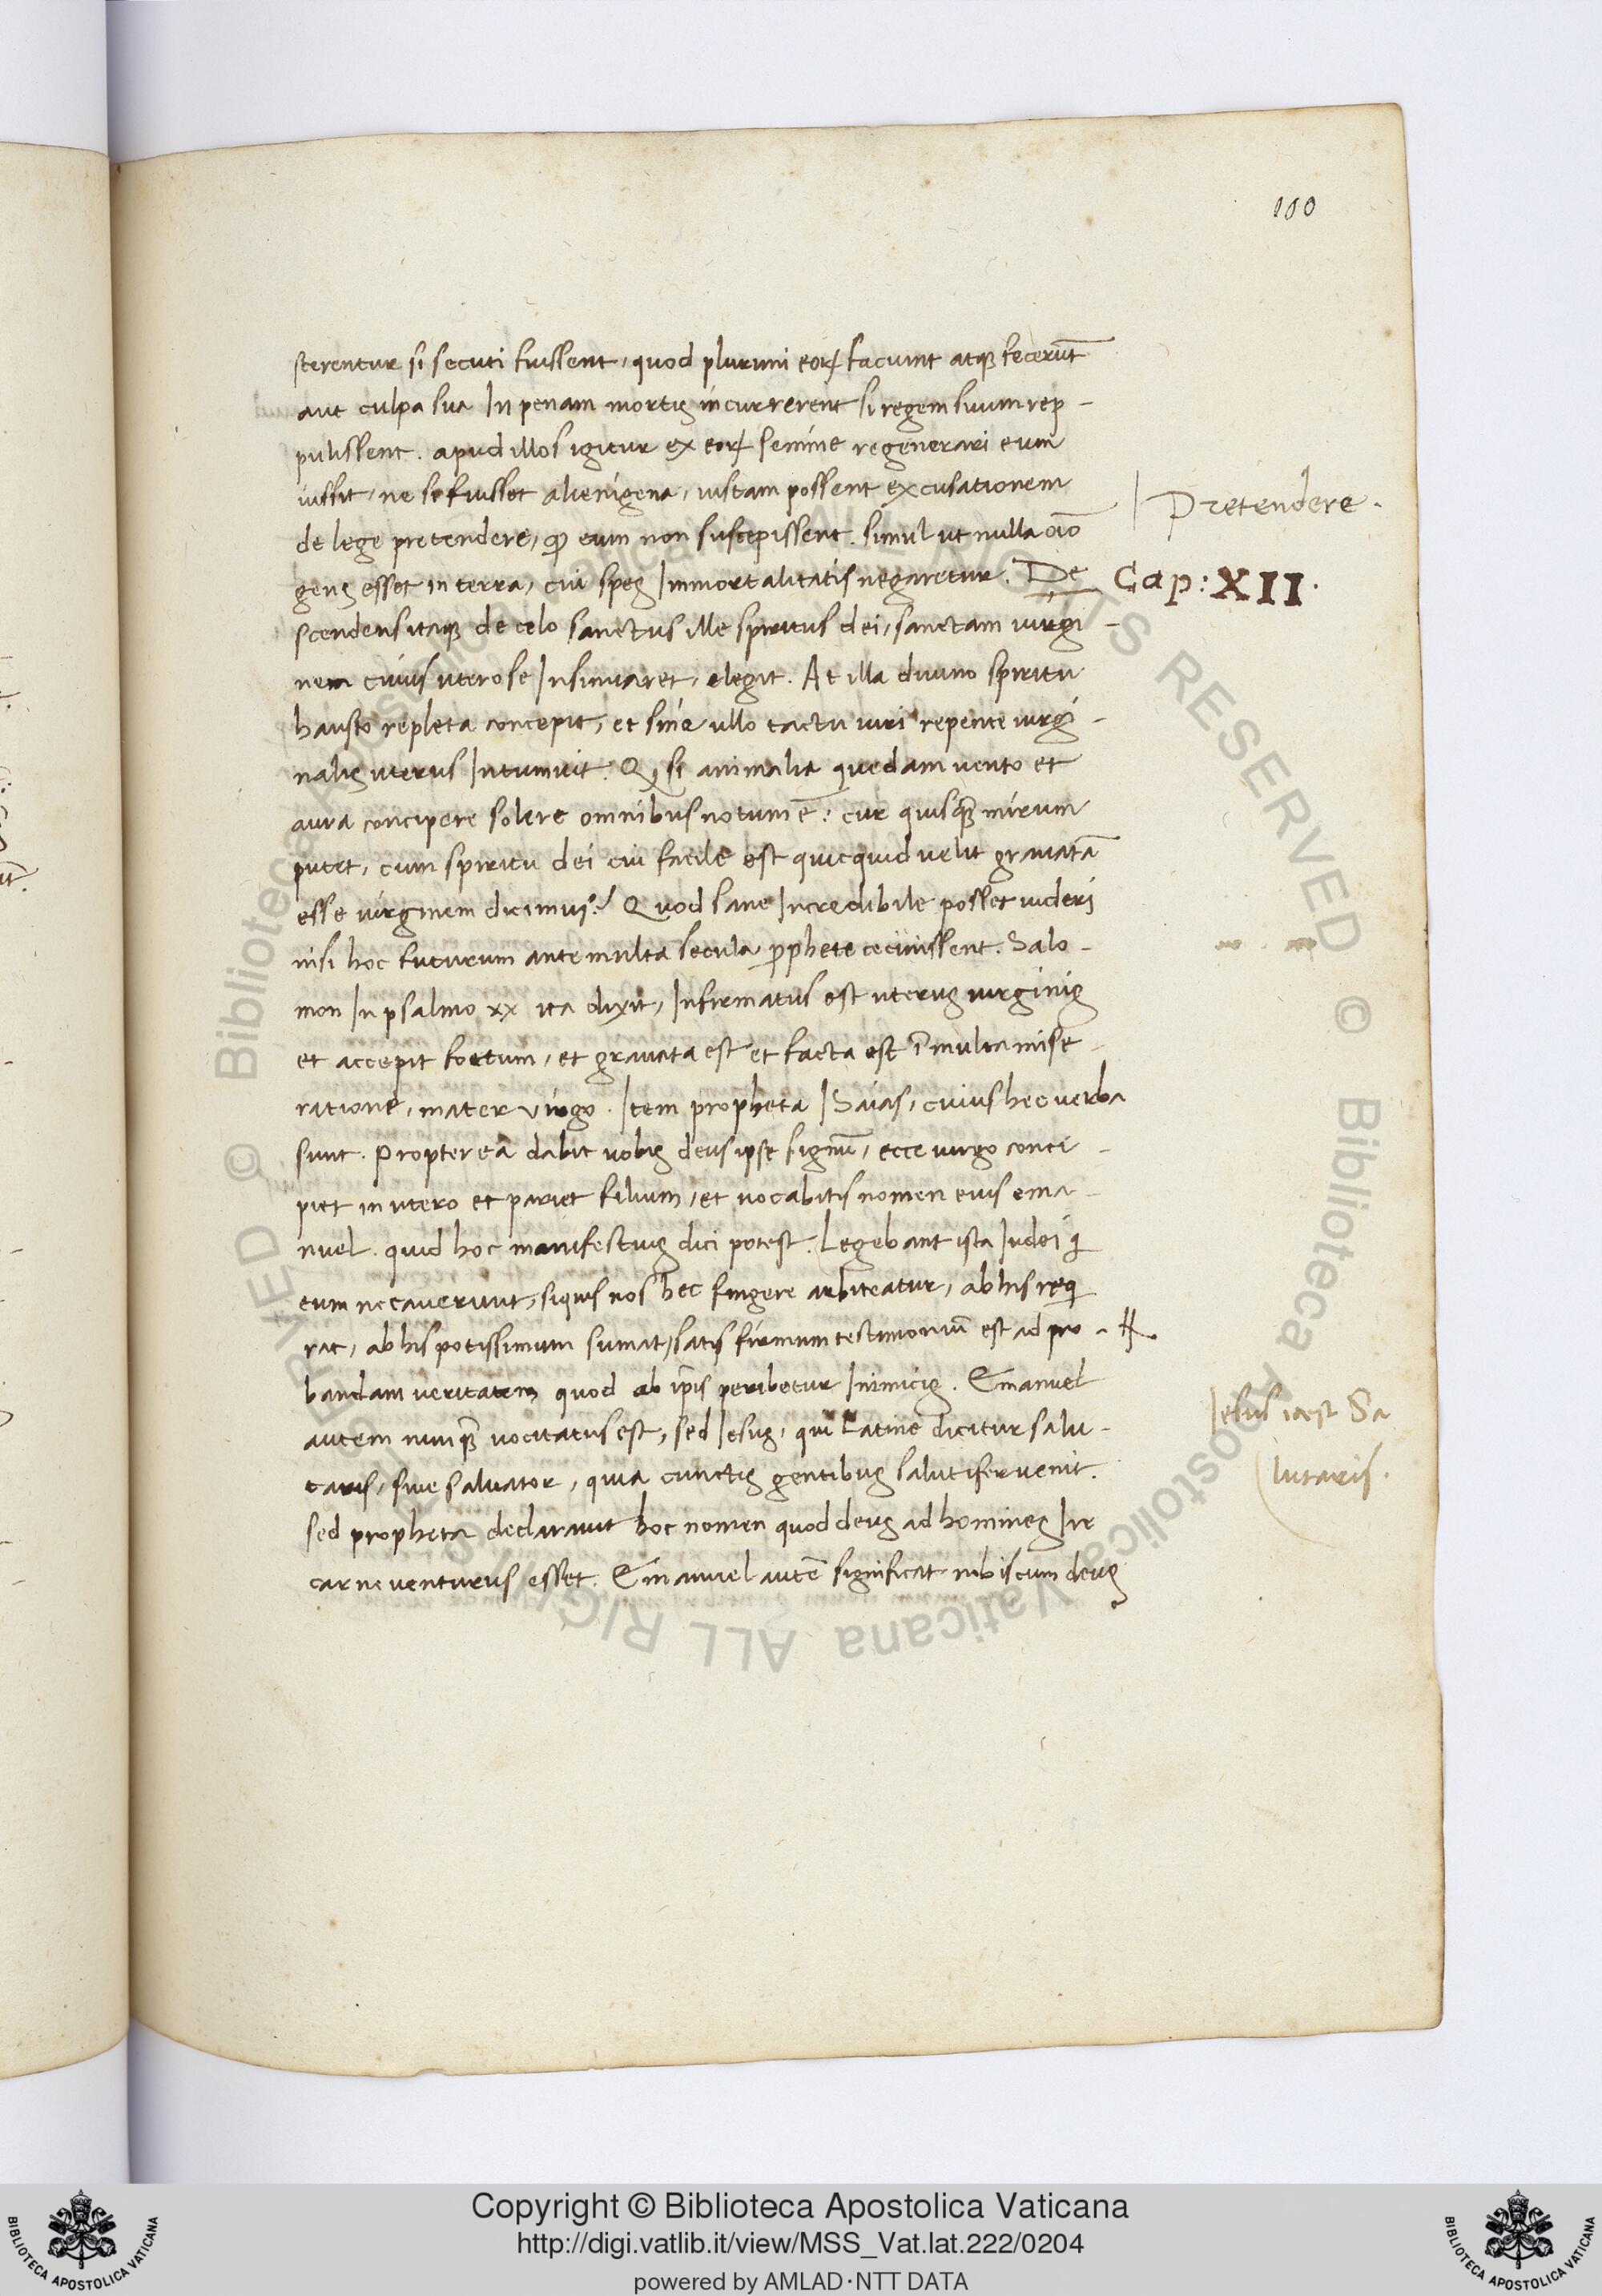 100
scerentur si secuti fuissent, quod plurimi eoꝝ faciunt atqꝫ fecerūt
aut culpa sua In penam mortis incurrerent si regem suum rep-
pulissent. apud illos igitur ex eoꝝ semine regenerari eum
iussit, ne si fuisset alienigena, iustam possent excusationem
Pretendere.
de lege pretendere, ꝙ eum non suscepissent. simul ut nulla oīo
gens esset in terra, cui spes Immortalitatis negaretur. De
Cap: XII.
scendens itaqꝫ de celo sanctus ille spiritus dei, sanctam uirgi-
nem cuius utero se Insinuaret, elegit. At illa diuino spiritu
hausto repleta concepit, et sine ullo tactu uiri repente uirgi-
nalis uterus Intumuit. Qꝫ si animalia quedam uento et
aura concipere solere omnibus notum ē: cur quisqꝫ mirum
putet, cum spiritu dei cui facile est quicquid uelit grauatā
esse uirginem dicimus? Quod sane Incredibile posset uideri
nisi hoc futurum ante multa secula ꝓphete cecinissent. Salo-
mon In psalmo xx ita dixit, Infirmatus est uterus uirginis
et accepit foetum, et grauata est et facta est ī multa mise-
ratione, mater virgo. Item propheta ISaias, cuius hec uerba
sunt. Propterea dabit uobis deus ipse signū, ecce uirgo conci-
piet in utero et pariet filium, et uocabitis nomen eius ema-
nuel. quid hoc manifestius dici potest. Legebant ista Iudei q̄
eum necauerunt, siquis nos hec fingere arbitratur, ab his reqi
rat, ab his potissimum sumat, satis firmum testimoniū est ad pro-
bandam ueritatem quod ab ip̄is peribetur Inimicis. Emanuel
autem nunqꝫ uocitatus est, sed Iesus, qui Latine dicitur salu-
Iesus id est Sa
taris, siue saluator, quia cunctis gentibus salutifer uenit.
lutaris.
sed propheta declarauit hoc nomen quod deus ad homines In
carne uenturus esset. Emanuel autē significat nobiscum deus
Copyright © Biblioteca Apostolica Vaticana
http://digi.vatlib.it/view/MSS_Vat.lat.222/0204
powered by AMLAD·NTT DATA
BIBLIOTECA APOSTOLICA VATICANA
BIBLIOTECA APOSTOLICA VATICANA
© Biblioteca Apostolica Vaticana ALL RIGHTS RESERVED © Biblioteca Apostolica Vaticana ALL RIGHTS RESERVED